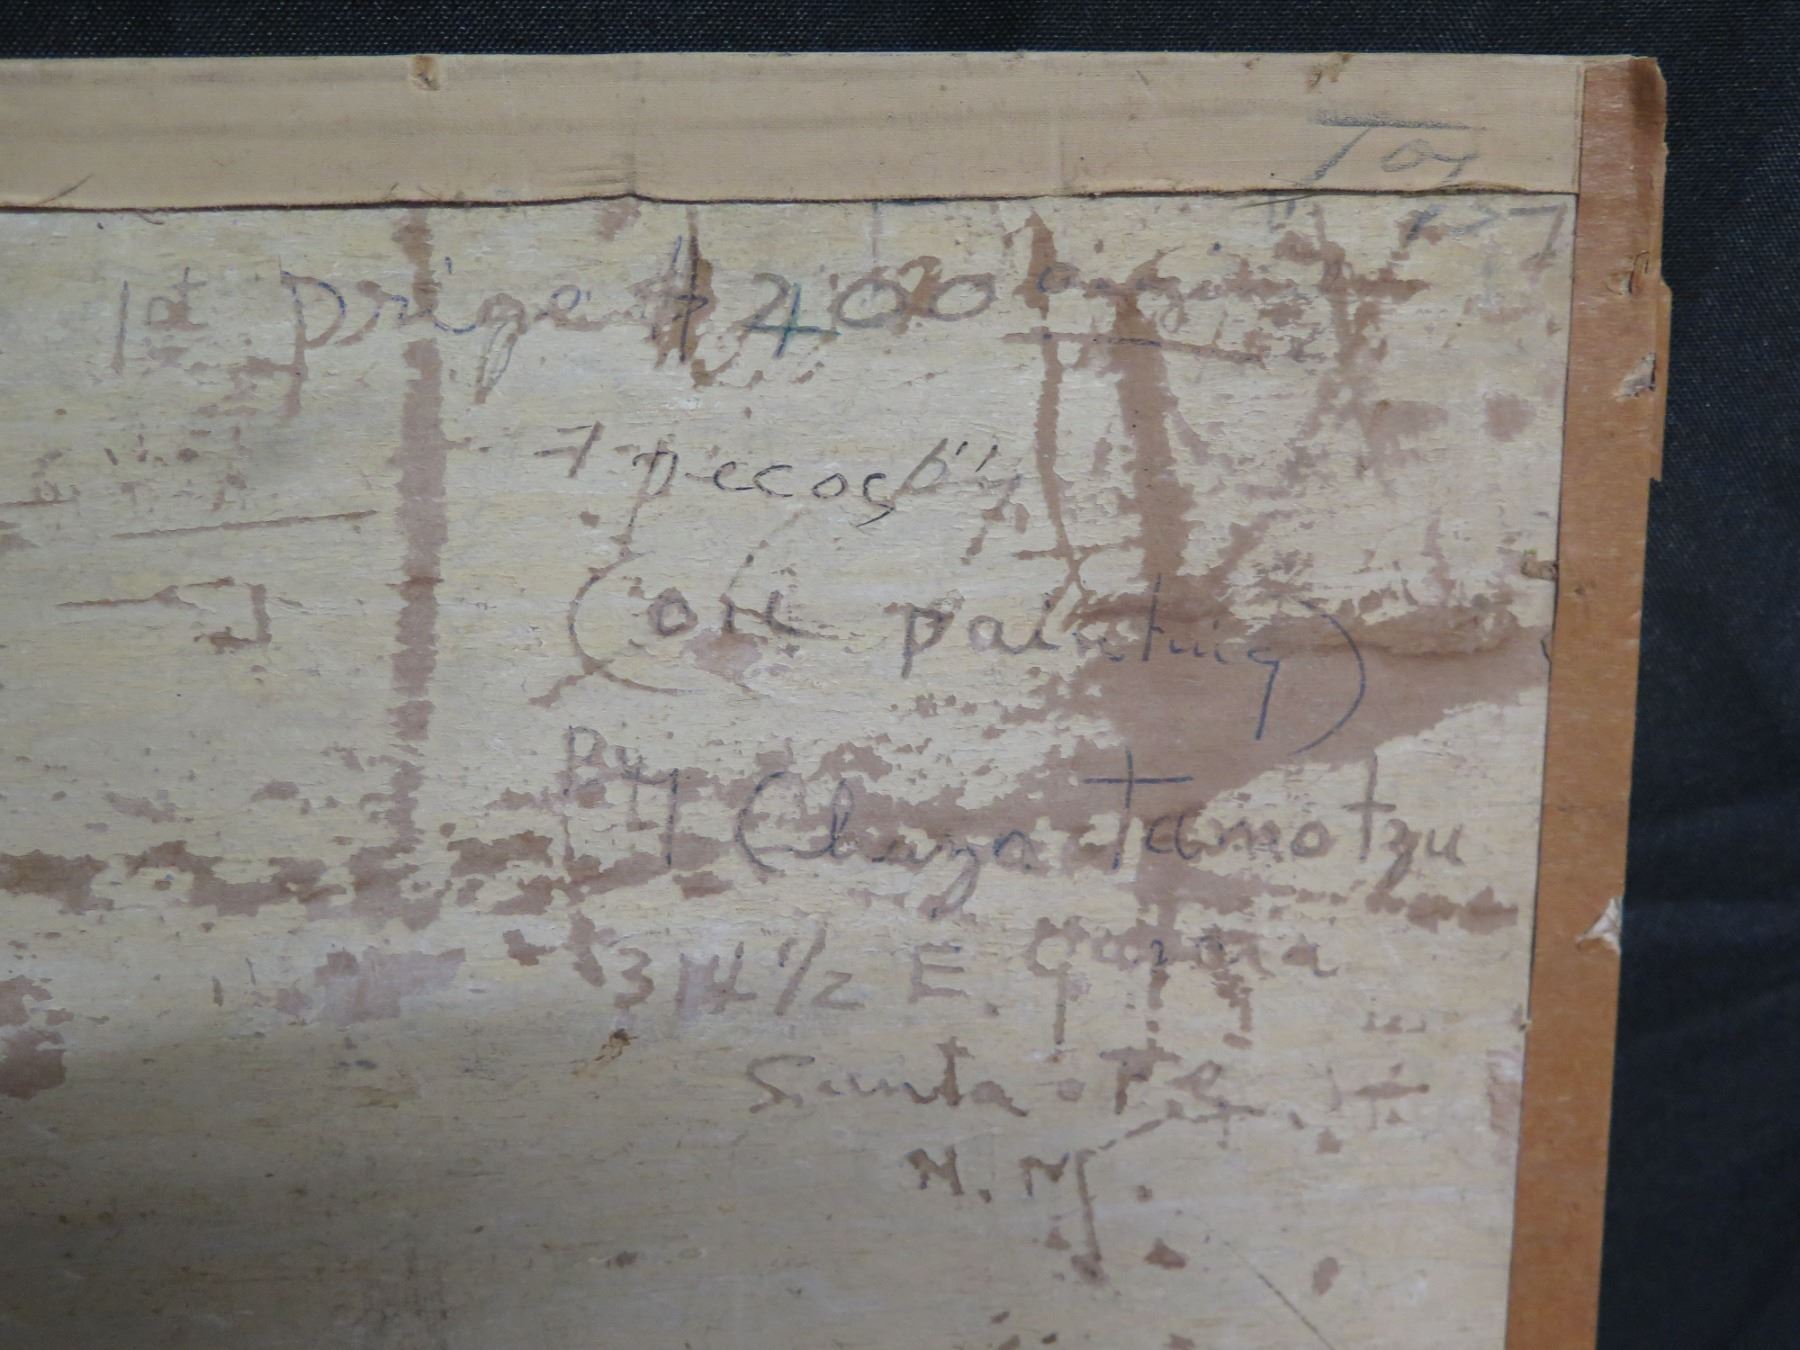 Toy
1st prize $ 400
pecos
(oil painting)
By Chuzo Tamotzu
314 1/2 E. Garcia
Santa Fe
N. M.